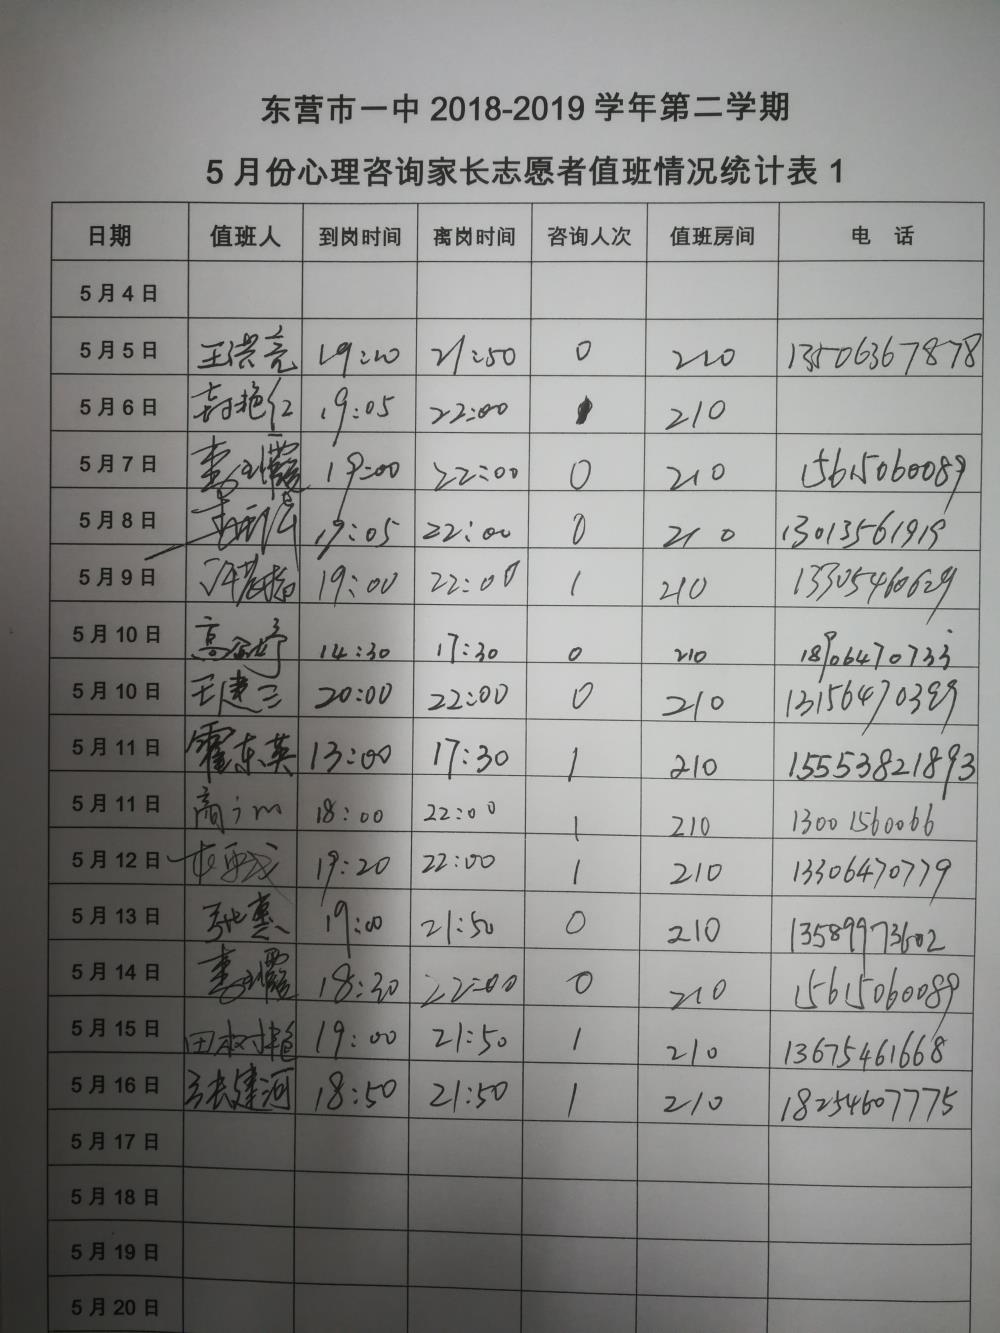 东营市一中 2018-2019 学年第二学期
5 月份心理咨询家长志愿者值班情况统计表 1
日期 值班人 到岗时间 离岗时间 咨询人次 值班房间 电 话
5 月 4 日
5 月 5 日 王洪亮 19:20 21:50 0 210 13506367878
5 月 6 日 19:05 22:00 210
5 月 7 日 19:00 22:00 0 210 15615060089
5 月 8 日 19:05 22:00 0 210 13013561919
5 月 9 日 19:00 22:00 1 210 13305460629
5 月 10 日 14:30 17:30 0 210 18906470733
5 月 10 日 王建三 20:00 22:00 0 210 13156470399
5 月 11 日 霍东英 13:00 17:30 1 210 15553821893
5 月 11 日 18:00 22:00 1 210 13001560066
5 月 12 日 19:20 22:00 1 210 13306470779
5 月 13 日 张惠 19:00 21:50 0 210 13589973602
5 月 14 日 18:30 22:00 0 210 15615060089
5 月 15 日 田树艳 19:00 21:50 1 210 13675461668
5 月 16 日 张建河 18:50 21:50 1 210 18254607775
5 月 17 日
5 月 18 日
5 月 19 日
5 月 20 日